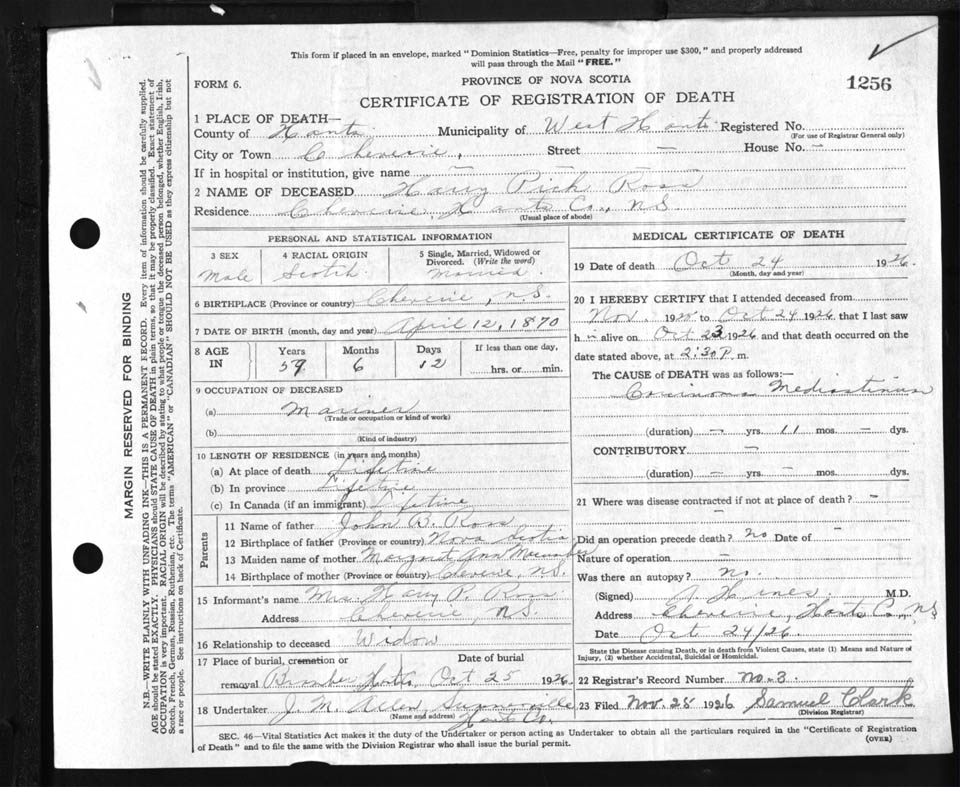 This form if placed in an envelope, marked "Dominion Statistics—Free, penalty for improper use $300," and properly addressed
will pass through the Mail "FREE."
PROVINCE OF NOVA SCOTIA
FORM 6.
1256
CERTIFICATE OF REGISTRATION OF DEATH
1 PLACE OF DEATH—
County of Hants Municipality of West Hants Registered No.
(For use of Registrar General only)
City or Town Cheverie, Street — House No. –
If in hospital or institution, give name — — —
2 NAME OF DECEASED Harry Ross
Residence Cheverie Hants Co., N.S.
(Usual place of abode)
PERSONAL AND STATISTICAL INFORMATION
3 SEX
Male
4 RACIAL ORIGIN
Scotch
5 Single, Married, Widowed or
Divorced. (Write the word)
Married.
6 BIRTHPLACE (Province or country) Cheverie, N.S.
7 DATE OF BIRTH (month, day and year) April 12, 1870
8 AGE IN
Years
Months
Days
If less than one day,
59 6 12
hrs. or min.
9 OCCUPATION OF DECEASED
(a) Mariner
(Trade or occupation or kind of work)
(b)
(Kind of industry)
10 LENGTH OF RESIDENCE (in years and months)
(a) At place of death Lifetime
(b) In province Lifetime
(c) In Canada (if an immigrant) Lifetime
Parents
11 Name of father John W. Ross
12 Birthplace of father (Province or country) Nova Scotia
13 Maiden name of mother Margaret Ann
14 Birthplace of mother (Province or country) Cheverie, N.S.
15 Informant's name Mrs Harry P. Ross
Address Cheverie, N.S.
16 Relationship to deceased Widow
17 Place of burial, cremation or Date of burial
removal Hants, Oct 25 1926.
18 Undertaker J. M. Allen, Summerville
(Name and address) Hants Co.
MEDICAL CERTIFICATE OF DEATH
19 Date of death Oct 24 1926.
(Month, day and year)
20 I HEREBY CERTIFY that I attended deceased from
Nov. 192 to Oct 24 1926 that I last saw
h alive on Oct 23 1926 and that death occurred on the
date stated above, at 2:30 P. m.
The CAUSE of DEATH was as follows:—
Carcinoma Mediastinum
(duration) — yrs. 11 mos. — dys.
CONTRIBUTORY —
(duration) — yrs. — mos. — dys.
21 Where was disease contracted if not at place of death? –
Did an operation precede death? no Date of —
Nature of operation —
Was there an autopsy? no.
(Signed) A Hines M.D.
Address Cheverie, Hants Co., NS
Date Oct 24/26.
State the Disease causing Death, or in death from Violent Causes, state (1) Means and Nature of
Injury, (2) whether Accidental, Suicidal or Homicidal.
22 Registrar's Record Number No. 3.
23 Filed Nov. 28 1926 Samuel Clark
(Division Registrar)
SEC. 46—Vital Statistics Act makes it the duty of the Undertaker or person acting as Undertaker to obtain all the particulars required in the "Certificate of Registration
of Death" and to file the same with the Division Registrar who shall issue the burial permit.
(OVER)
MARGIN RESERVED FOR BINDING
N.B.—WRITE PLAINLY WITH UNFADING INK—THIS IS A PERMANENT RECORD. Every item of information should be carefully supplied.
AGE should be stated EXACTLY. PHYSICIANS should STATE CAUSE OF DEATH in plain terms, so that it may be properly classified. Exact statement of
OCCUPATION is very important. RACIAL ORIGIN will be described by stating to what people or tongue the deceased person belonged, whether English, Irish,
Scotch, French, German, Russian, Ruthenian, etc. The terms "AMERICAN" or "CANADIAN" SHOULD NOT BE USED as they express citizenship but not
a race or people. See instructions on back of Certificate.